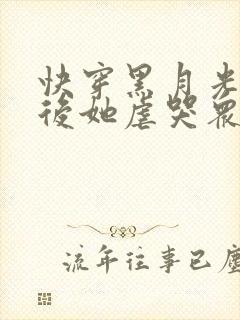 快穿黑月光
後她虐哭眾
流年往事已塵